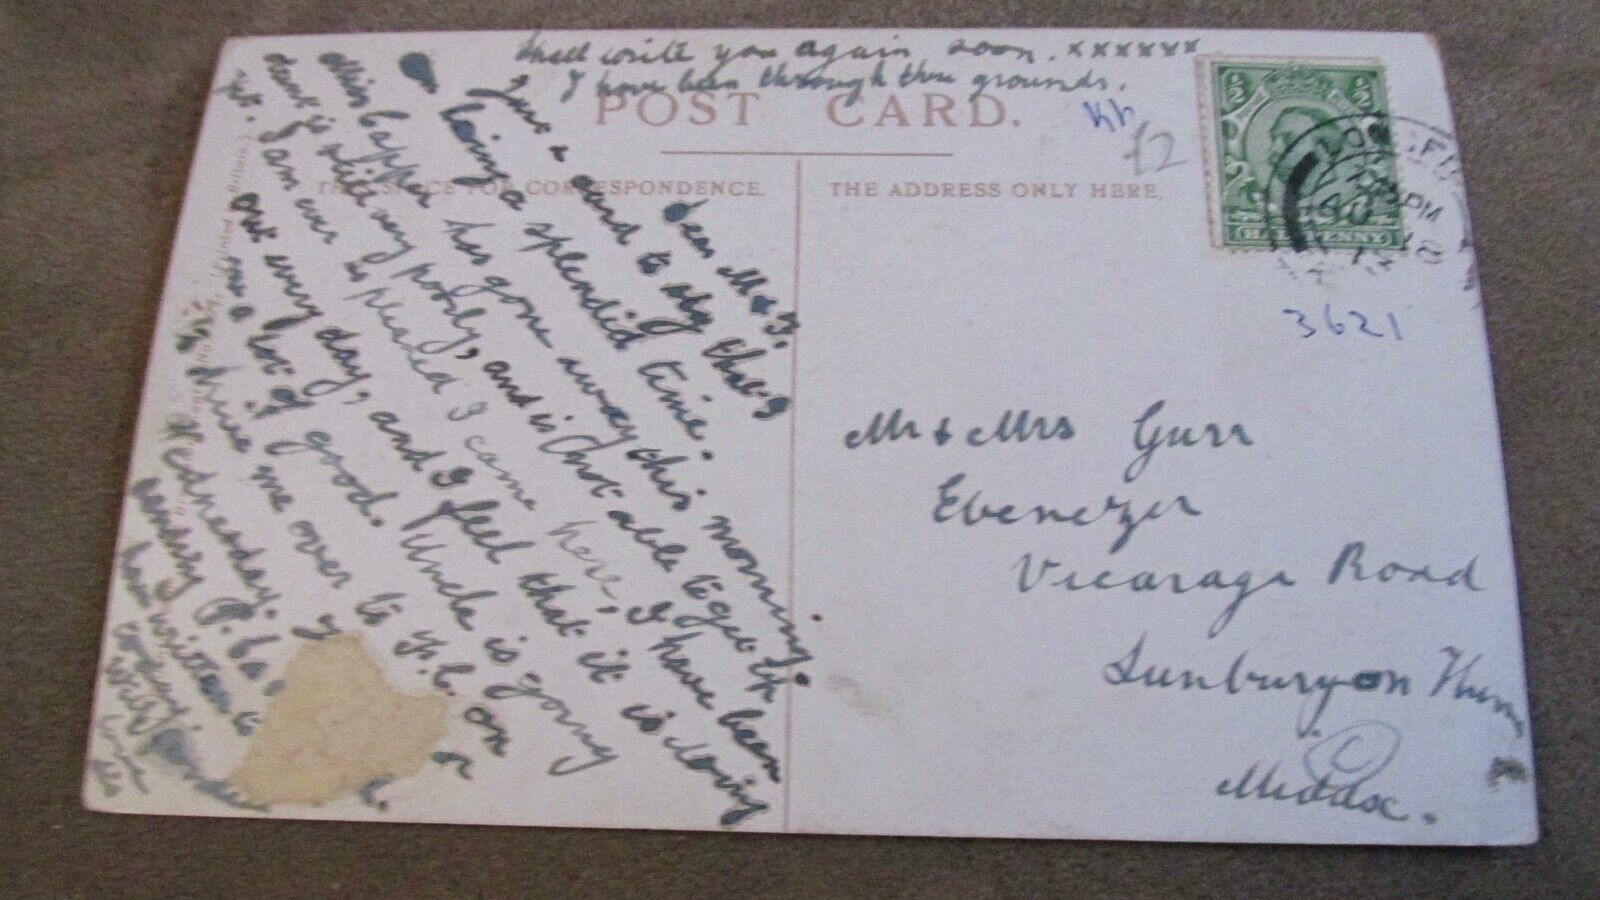 shall write you again soon. xxxxxx
I have been through the grounds.
POST CARD.
THE SPACE FOR CORRESPONDENCE.
THE ADDRESS ONLY HERE.
Dear M & F.
Just a card to say that I
am having a splendid time.
Miss Capper has gone away this morning.
Aunt is still very poorly, and is not able to get up
yet. I am ever so pleased I came here, I have been
out every day, and I feel that it is doing
me a lot of good. Uncle is going
to drive me over to F.C. on
Wednesday.
sending P.
have written to
today.
with
love
Mr & Mrs Gurr
Ebenezer
Vicarage Road
Sunbury on
Middx.
½
½
HALFPENNY
PM
AU
12
Kh
£2
3621
C